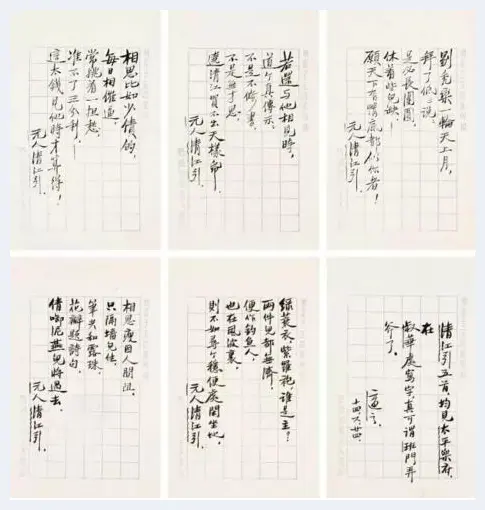 相思比如少債的，
每日相催逼。
常挑着一担愁，
准不了三分利，—
這本錢見他時才算得！
元人清江引
若還与他相見時，
道个真傳示：
不是不修書，
不是無才思，
遶清江買不出天樣帋！
元人清江引
剔秃圞一輪天上月，
拜了低低說：
是必長團圓，
休着些兒缺，—
願天下有情底都似你者！
元人清江引
相思瘦因人間阻，
只隔墻兒住。
筆尖和露珠，
花瓣題詩句，
倩啣泥燕兒將過去。
元人清江引。
綠蓑衣紫羅袍誰是主？
兩件兒都無濟，
便作釣魚人，
也在風波裏，
則不如尋个穩便處閑坐地。
元人清江引。
清江引五首均見太平樂府。
在
叔華處寫字，真可謂班門弄
斧了。
適之
十四，六，廿四。